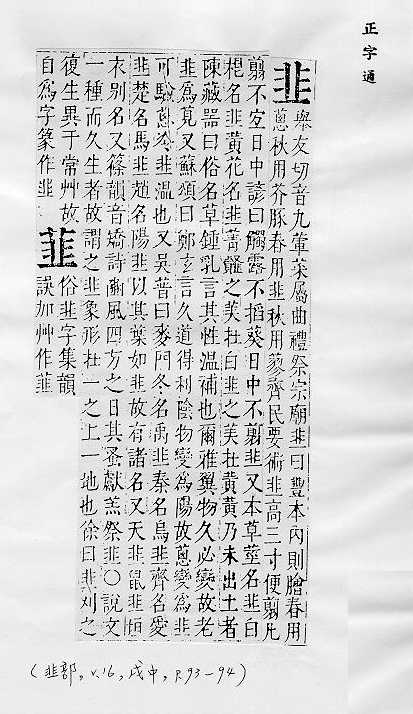 正字通
韭 舉友切音九葷菜屬曲禮祭宗廟韭曰豐本內則膾春用
蔥秋用芥豚春用韭秋用蓼齊民要術韭高三寸便翦凡
翦不宜日中諺曰觸露不掐葵日中不翦韭又本草莖名韭白
根名韭黃花名韭菁薤之美在白韭之美在黃黃乃未出土者
陳藏器曰俗名草鍾乳言其性溫補也爾雅翼物久必變故老
韭為莧又蘇頌曰鄭玄言久道得利陰物變為陽故蔥變為韭
可驗蔥冷韭溫也又吳普曰麥門冬名禹韭秦名烏韭齊名愛
韭楚名馬韭趙名陽韭以其葉如韭故有諸名又天韭鼠韭垣
衣別名又篠韻音矯詩豳風四方之日其蚤獻羔祭韭〇說文
一種而久生者故謂之韭象形在一之上一地也徐曰韭刈之
復生異于常艸故
自為字篆作韭
韮 俗韭字集韻
誤加艸作韮
(韭部, v.16, 戌中, p.93-94)